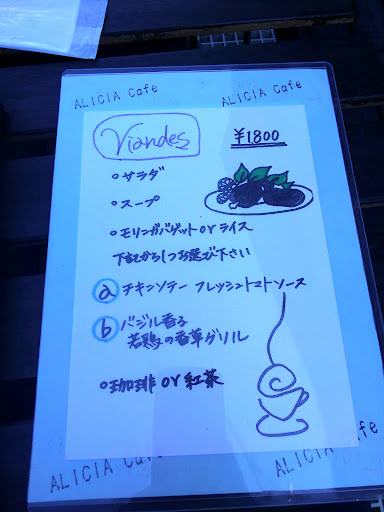 ALICIA Cafe
ALICIA Cafe
Viandes
¥1800
○サラダ
○スープ
○モリンガバゲット or ライス
下記から1つお選び下さい
ⓐ チキンソテー フレッシュトマトソース
ⓑ バジル香る
若鶏の香草グリル
○珈琲 or 紅茶
ALICIA Cafe
ALICIA Cafe